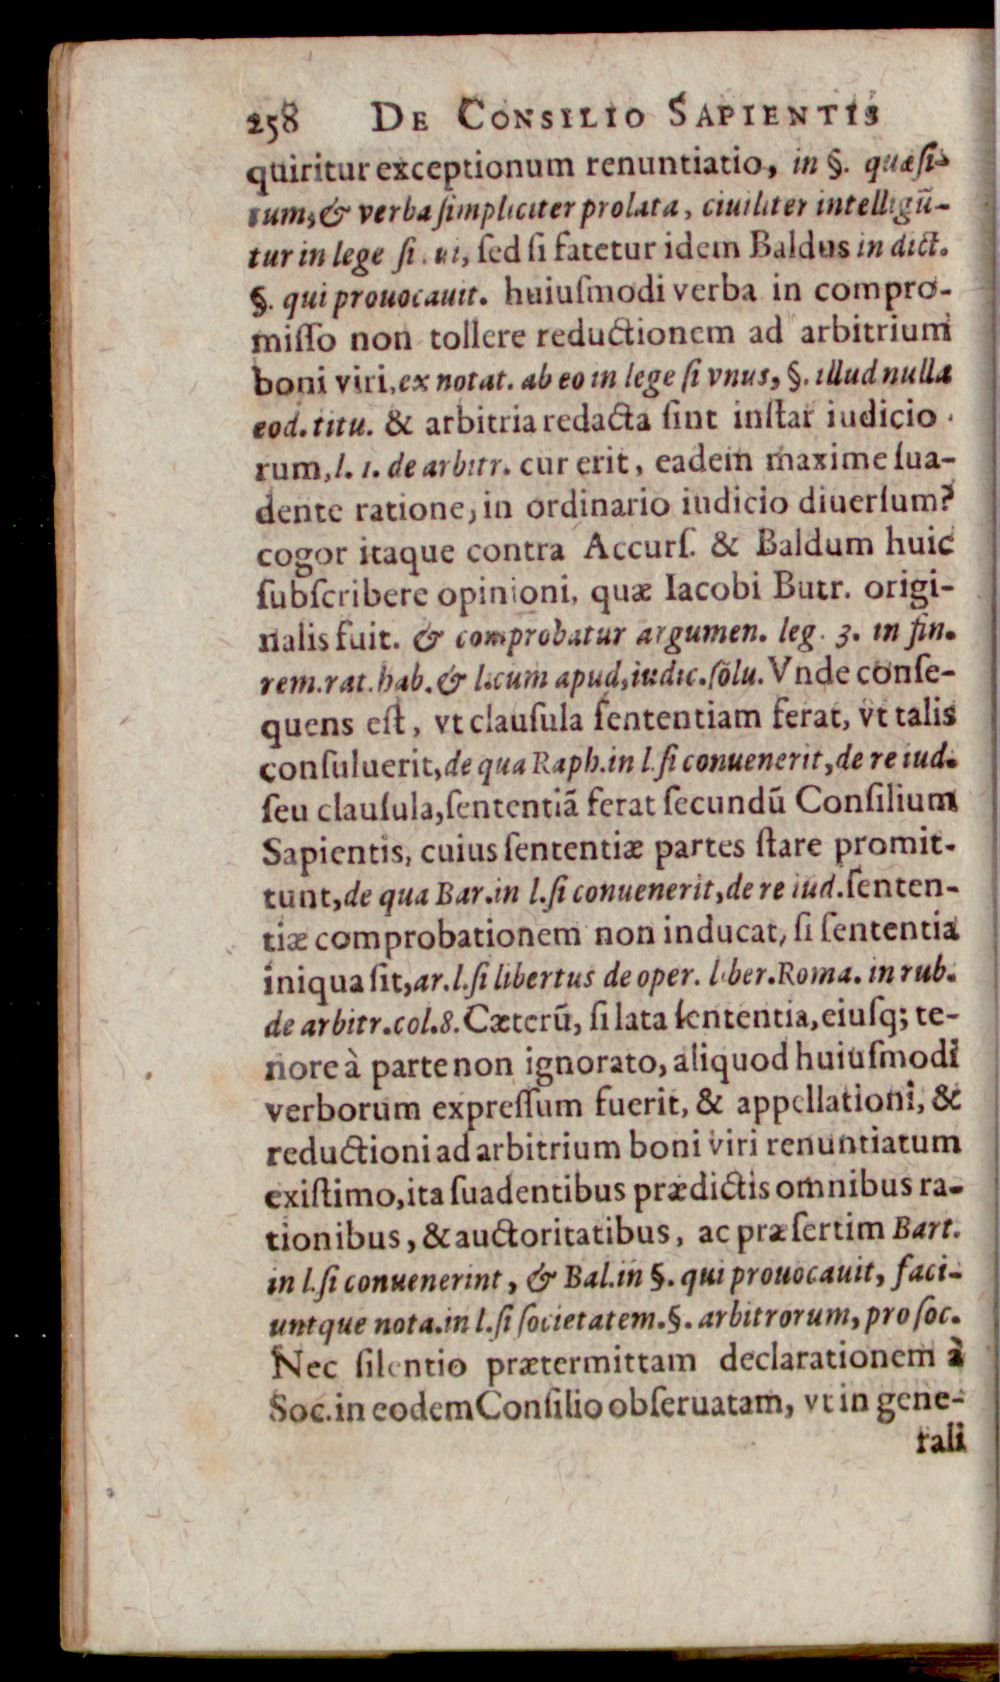 258 DE CONSILIO SAPIENTIS
quiritur exceptionum renuntiatio, in §. quæsi-
tum, & verba simpliciter prolata, ciuiliter intelligũ-
tur in lege si . ui, sed si fatetur idem Baldus in dict.
§. qui prouocauit. huiusmodi verba in compro-
misso non tollere reductionem ad arbitrium
boni viri, ex notat. ab eo in lege si vnus, §. illud nulla
eod. titu. & arbitria redacta sint instar iudicio-
rum, l. 1. de arbitr. cur erit, eadem maxime sua-
dente ratione, in ordinario iudicio diuersum?
cogor itaque contra Accurs. & Baldum huic
subscribere opinioni, quæ Iacobi Butr. origi-
nalis fuit. & comprobatur argumen. leg. 3. in fin.
rem. rat. hab. & l. cum apud, iudic. sõlu. Vnde conse-
quens est, vt clausula sententiam ferat, vt talis
consuluerit, de qua Raph. in l. si conuenerit, de re iud.
seu clausula, sententiã ferat secundũ Consilium
Sapientis, cuius sententiæ partes stare promit-
tunt, de qua Bar. in l. si conuenerit, de re iud. senten-
tiæ comprobationem non inducat, si sententia
iniqua sit, ar. l. si libertus de oper. liber. Roma. in rub.
de arbitr. col. 8. Cæterũ, si lata sententia, eiusq; te-
nore à parte non ignorato, aliquod huiusmodi
verborum expressum fuerit, & appellationi, &
reductioni ad arbitrium boni viri renuntiatum
existimo, ita suadentibus prædictis omnibus ra-
tionibus, & auctoritatibus, ac præsertim Bart.
in l. si conuenerint, & Bal. in §. qui prouocauit, faci-
untque nota. in l. si societatem. §. arbitrorum, pro soc.
Nec silentio prætermittam declarationem à
Soc. in eodem Consilio obseruatam, vt in gene-
rali